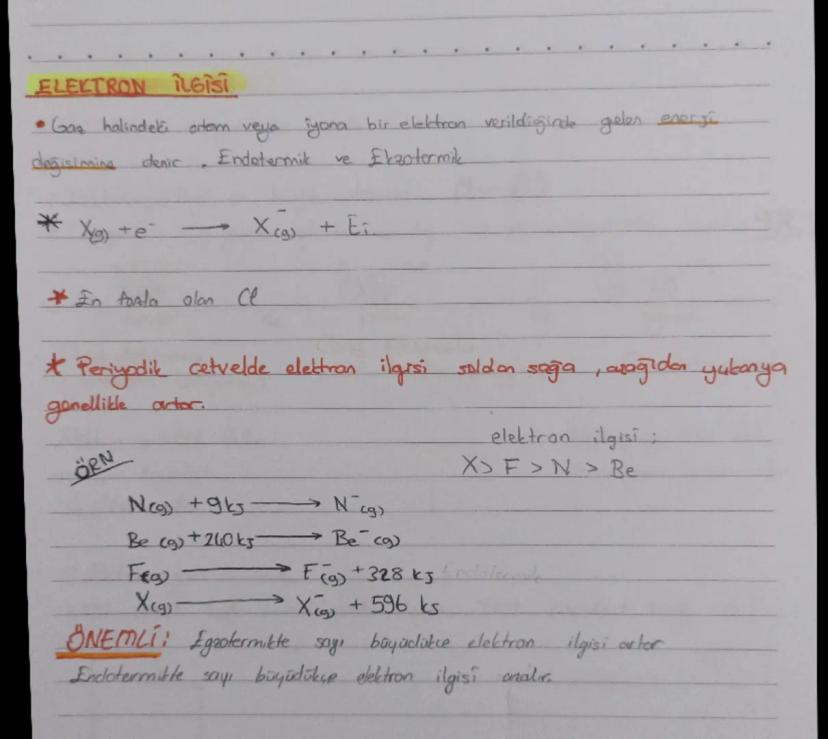 ELEKTRON İLGİSİ
• Gaz halindeki artom veya iyona bir elektron verildiğinde gelen enerji
değişimine denir. Endotermik ve Ekzotermik
* X(g) + e⁻ → X⁻(g) + Ei
* En fazla olan Cl
* Periyodik cetvelde elektron ilgisi soldan sağa, aşağıdan yukarıya
genellikle artar.
elektron ilgisi;
ÖRN
X > F > N > Be
N(g) + 9 kj → N⁻(g)
Be (g) + 240 kj → Be⁻(g)
F(g) → F⁻(g) + 328 kj
X(g) → X⁻(g) + 596 kj
ÖNEMLİ: Egzotermikte sayı büyüdükçe elektron ilgisi artar
Endotermikte sayı büyüdükçe elektron ilgisi azalır.